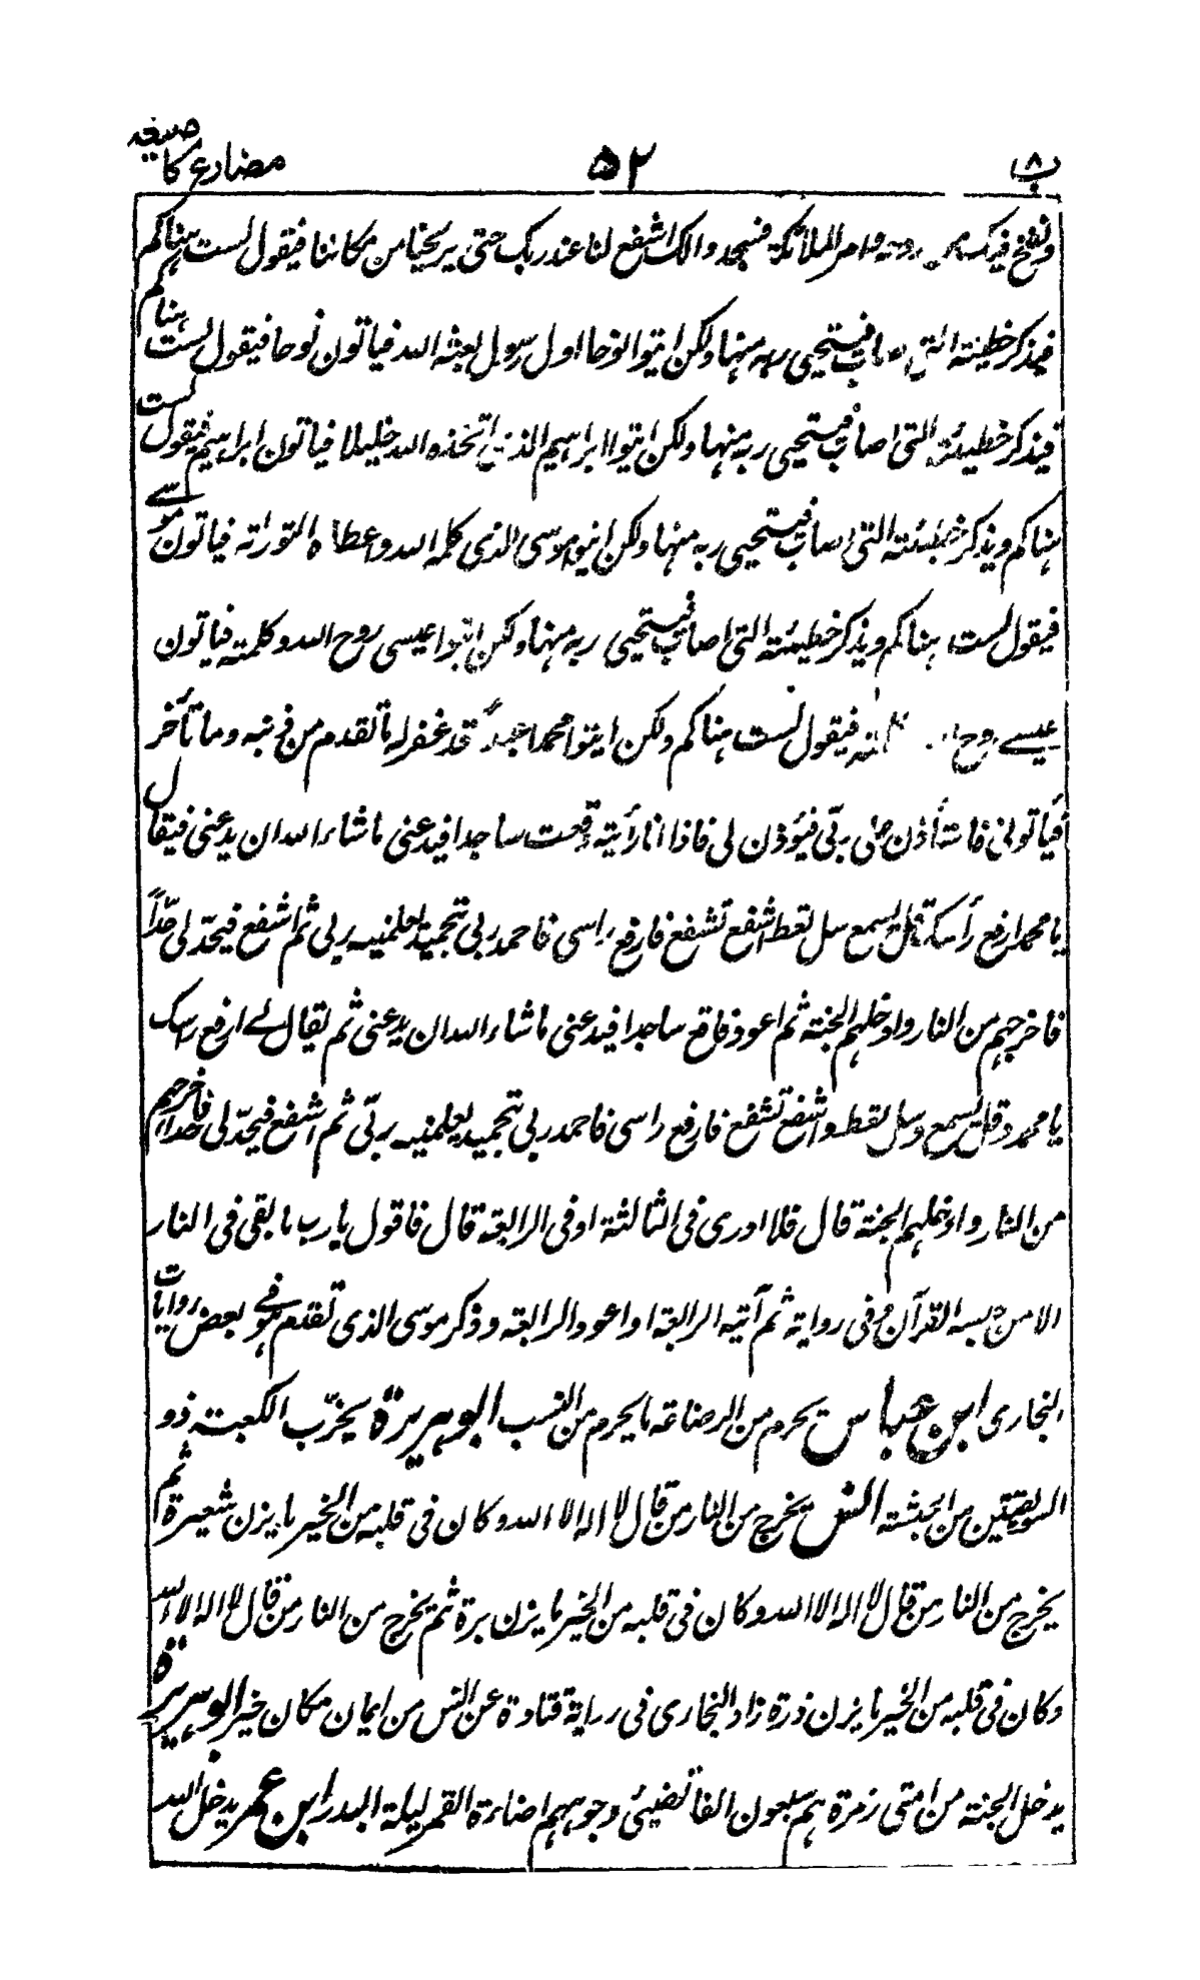 ب ۸ ۵۲ مضارع کا صیغہ
ونفخ فیک من روحه وامر الملائکة فسجدوا لک اشفع لنا عند ربک حتی یریحنا من مکاننا فیقول لست هناکم
فیذکر خطیئته التی اصاب فیستحیی ربه منها ولکن ایتوا نوحا اول رسول بعثه الله فیاتون نوحا فیقول لست هناکم
فیذکر خطیئته التی اصاب فیستحیی ربه منها ولکن ایتوا ابراهیم الذی اتخذه الله خلیلا فیاتون ابراهیم فیقول لست
هناکم ویذکر خطیئته التی اصاب فیستحیی ربه منها ولکن ایتوا موسی الذی کلمه الله واعطاه التوراته فیاتون موسے
فیقول لست هناکم ویذکر خطیئته التی اصاب فیستحیی ربه منها ولکن ایتوا عیسی روح الله وکلمته فیاتون
عیسے روح فیقول لست هناکم ولکن ایتوا محمدا عبدا قد غفر له ما تقدم من ذنبه وما تأخر
فیأتونی فاستأذن علی ربّی فیؤذن لی فاذا انا رأیته وقعت ساجدا فیدعنی ما شاء الله ان یدعنی فیقال
یا محمد ارفع رأسک قل یسمع سل تعط اشفع تشفع فارفع راسی فاحمد ربی بتحمید یعلمنیه ربی ثم اشفع فیحدّ لی حدّاً
فاخرجهم من النار وادخلهم الجنة ثم اعود فاقع ساجدا فیدعنی ما شاء الله ان یدعنی ثم یقال لے ارفع راسک
یا محمد وقل یسمع وسل تعط واشفع تشفع فارفع راسی فاحمد ربی بتحمید یعلمنیه ربّی ثم اشفع فیحدّ لی حدا فاخرجهم
من النار وادخلهم الجنة قال فلا ادری فی الثالثة او فی الرابعة قال فاقول یا رب ما بقی فی النار
الا من حبسه القرآن وفی روایة ثم آتیه الرابعة او اعود الرابعة وذکر موسی الذی تقدم هو فے بعض روایات
البخاری ابن عباس یحرم من الرضاعة ما یحرم من النسب ابوهریرة یخرّب الکعبة ذو
السویقتین من الحبشة انس یخرج من النار من قال لا اله الا الله وکان فی قلبه من الخیر ما یزن شعیرة ثم
یخرج من النار من قال لا اله الا الله وکان فی قلبه من الخیر ما یزن برة ثم یخرج من النار من قال لا اله الا الله
وکان فی قلبه من الخیر ما یزن ذرة زاد البخاری فی روایة قتادة عن انس من ایمان مکان خیر ابوهریرة
یدخل الجنة من امتی زمرة هم سبعون الفا تضیئ وجوههم اضاءة القمر لیلة البدر ابن عمر یدخل الله